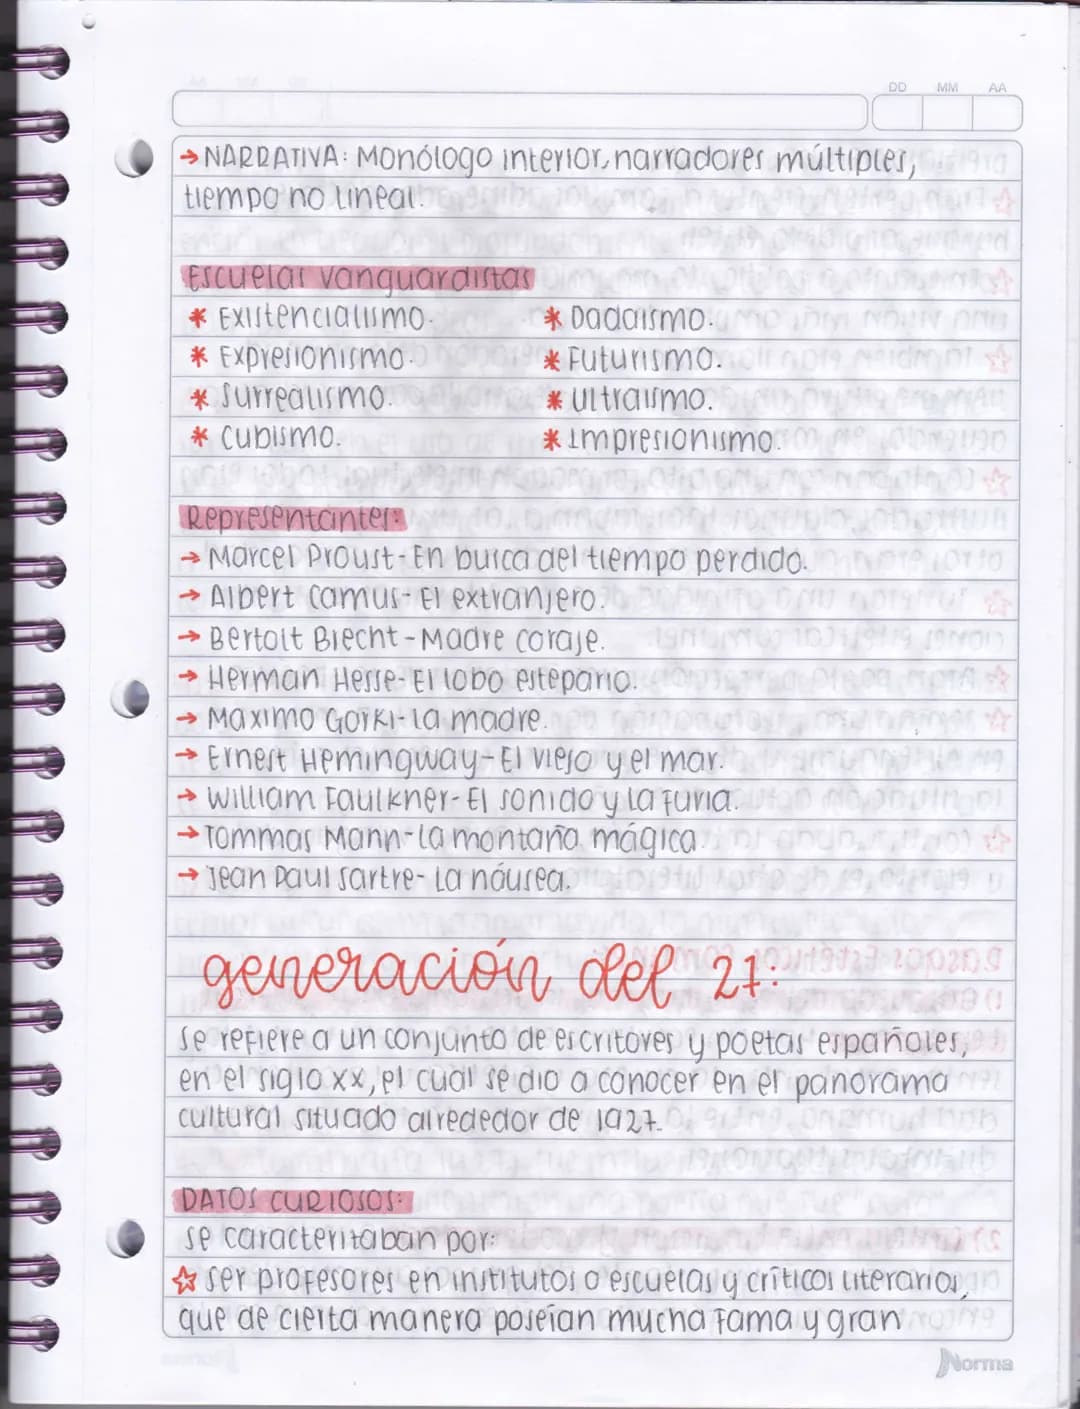 DD MM AA
→ NARRATIVA: Monólogo interior, narradores múltiples,
tiempo no lineal.
Escuelas vanguardistas
* Existencialismo. * Dadaísmo.
* Expresionismo. * Futurismo.
* Surrealismo. * Ultraísmo.
* Cubismo. * Impresionismo.
Representantes:
→ Marcel Proust-En busca del tiempo perdido.
→ Albert Camus-El extranjero.
→ Bertolt Brecht-Madre coraje.
→ Herman Hesse-El lobo estepario.
→ Maximo Gorki-la madre.
→ Ernest Hemingway-El viejo y el mar.
→ William Faulkner-El sonido y la furia.
→ Tommas Mann-La montaña mágica.
→ Jean Paul Sartre-La náusea.
generación del 27:
se refiere a un conjunto de escritores y poetas españoles,
en el siglo XX, el cual se dio a conocer en el panorama
cultural situado alrededor de 1927.
DATOS CURIOSOS:
se caracterizaban por:
☆ ser profesores en institutos o escuelas y críticos literarios,
que de cierta manera poseían mucha fama y gran
Norma